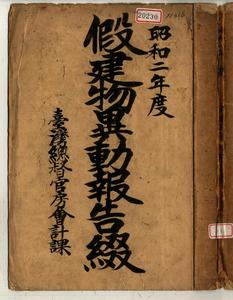 20230
昭和二年度
假建物異動報告綴
臺灣總督官房會計課